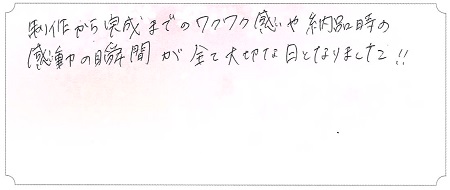 制作から完成までのワクワク感や納品時の
感動の瞬間が全て大切な日となりました!!